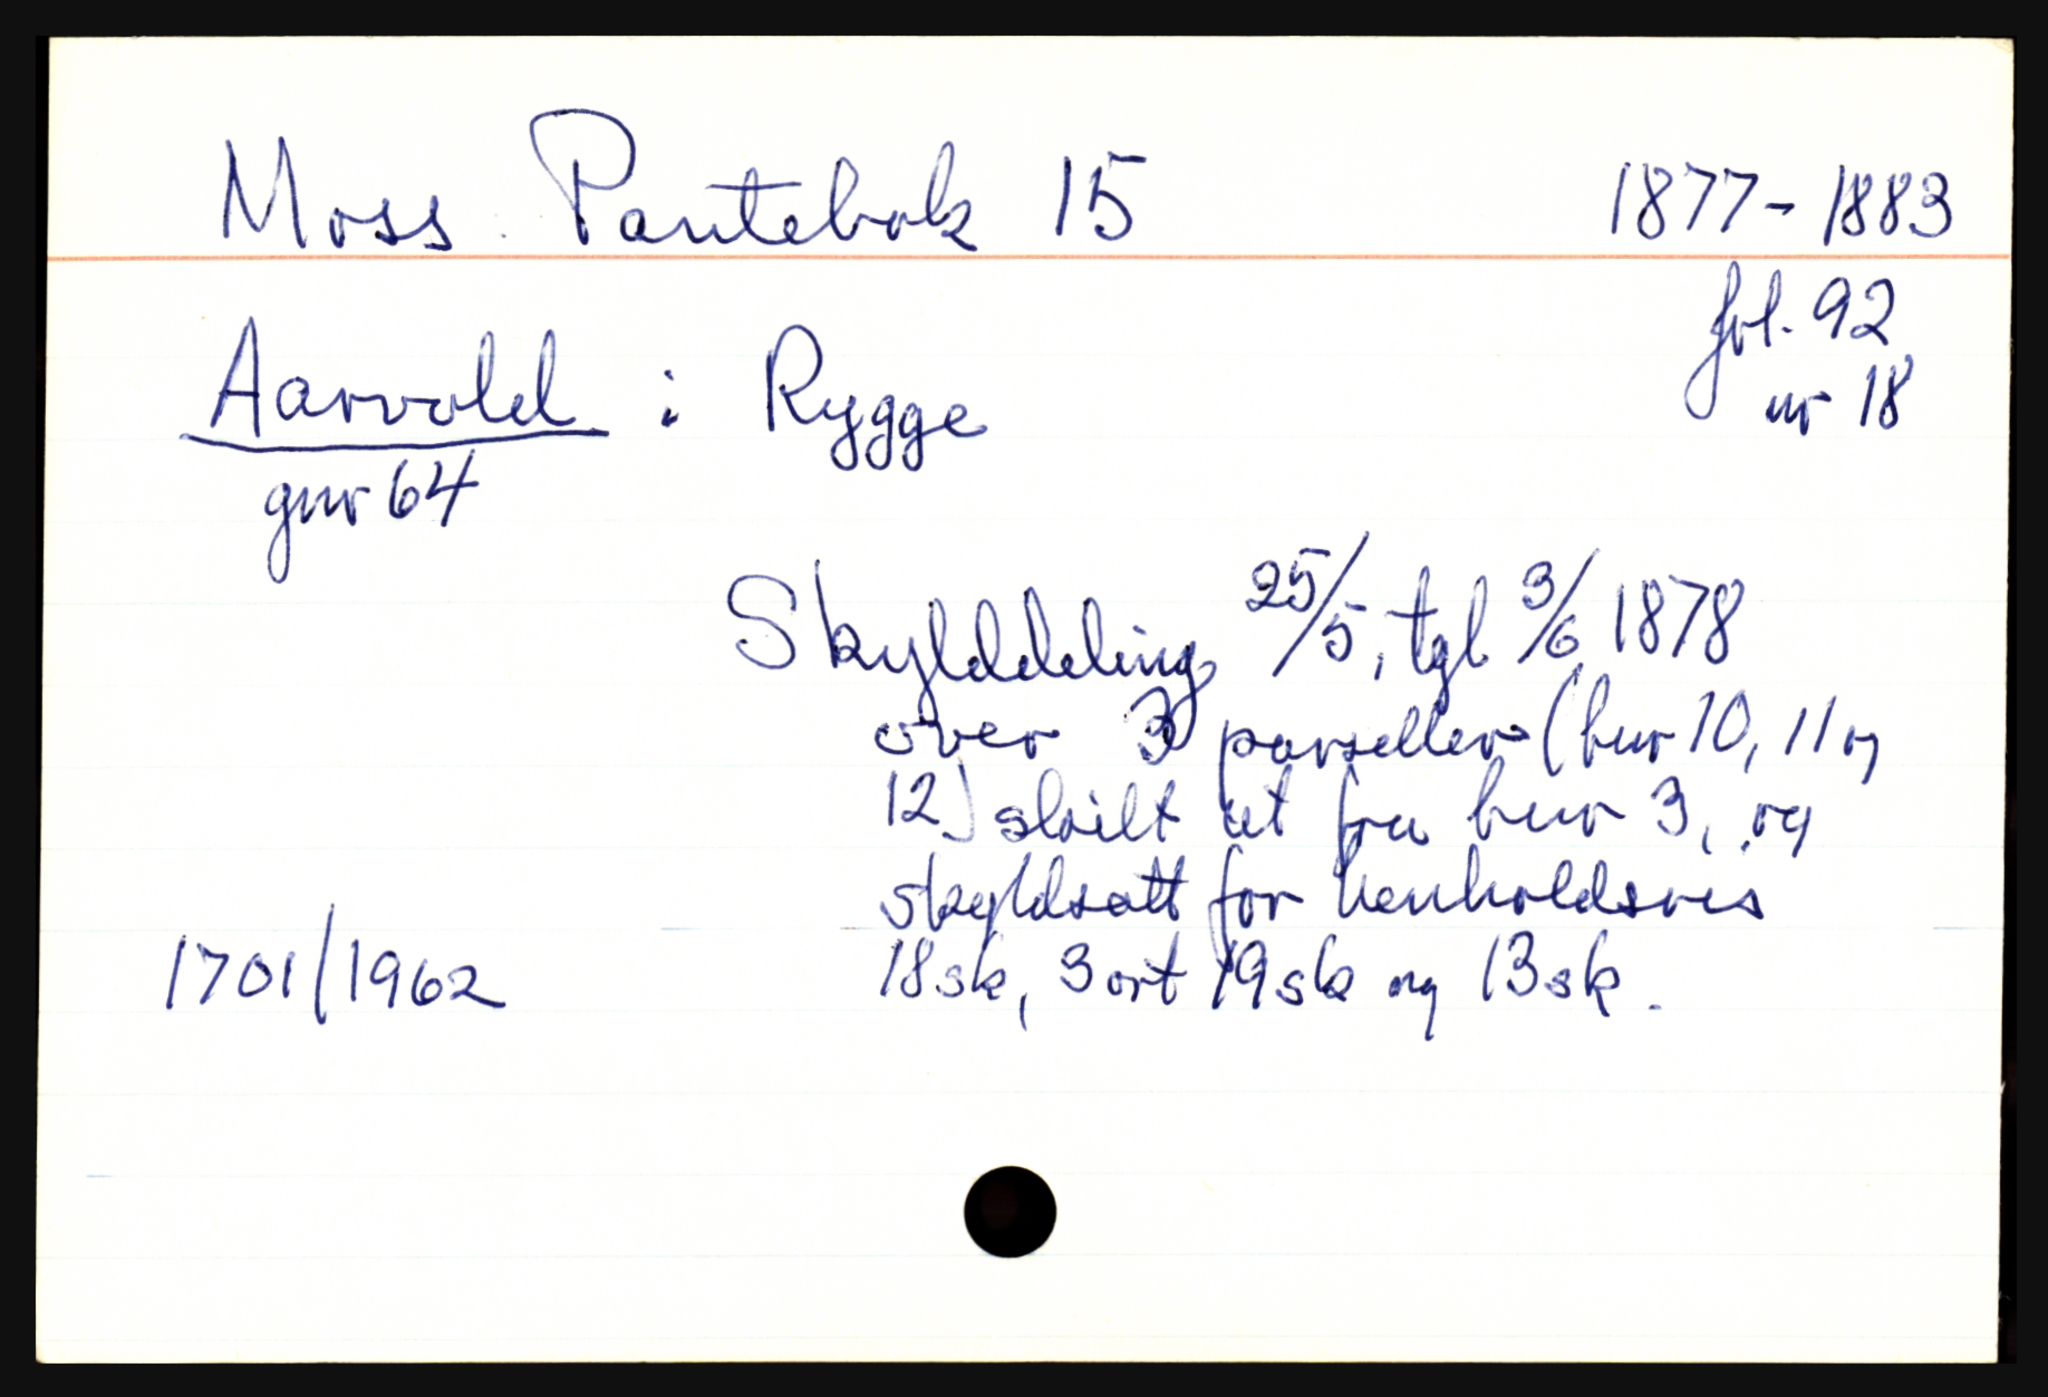 Moss Pantebok 15 1877-1883
fol. 92
nr 18
Aarvold i Rygge
gnr 64
Skylddeling 25/5, tgl 3/6 1878
over 3 parseller (bnr 10, 11 og
12) skilt ut fra bnr 3, og
skyldsatt for henholdsvis
18 sk, 3 ort 19 sk og 13 sk.
1701/1962